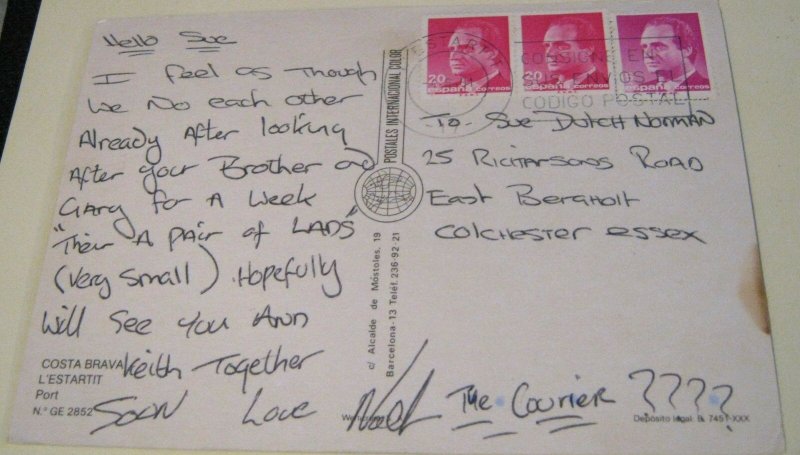 Hello Sue
I feel as Though
we No each other
Already After looking
After your Brother and
Gary for A week
"Their A pair of LADS"
(very small) Hopefully
Will See you And
Keith Together
Soon Love Noel The Courier ????
COSTA BRAVA
L'ESTARTIT
Port
N.° GE 2852
POSTALES INTERNACIONAL COLOR
c/ Alcalde de Móstoles, 19
Barcelona-13 Teléf. 236-92-21
20
españa correos
20
españa correos
españa correos
CONSIGNE EN
SUS ENVIOS EL
CODIGO POSTAL
-To- Sue DUTCH NORMAN
25 RICHARSONS ROAD
East Bergholt
Colchester Essex
Depósito legal: B. 7451-XXX